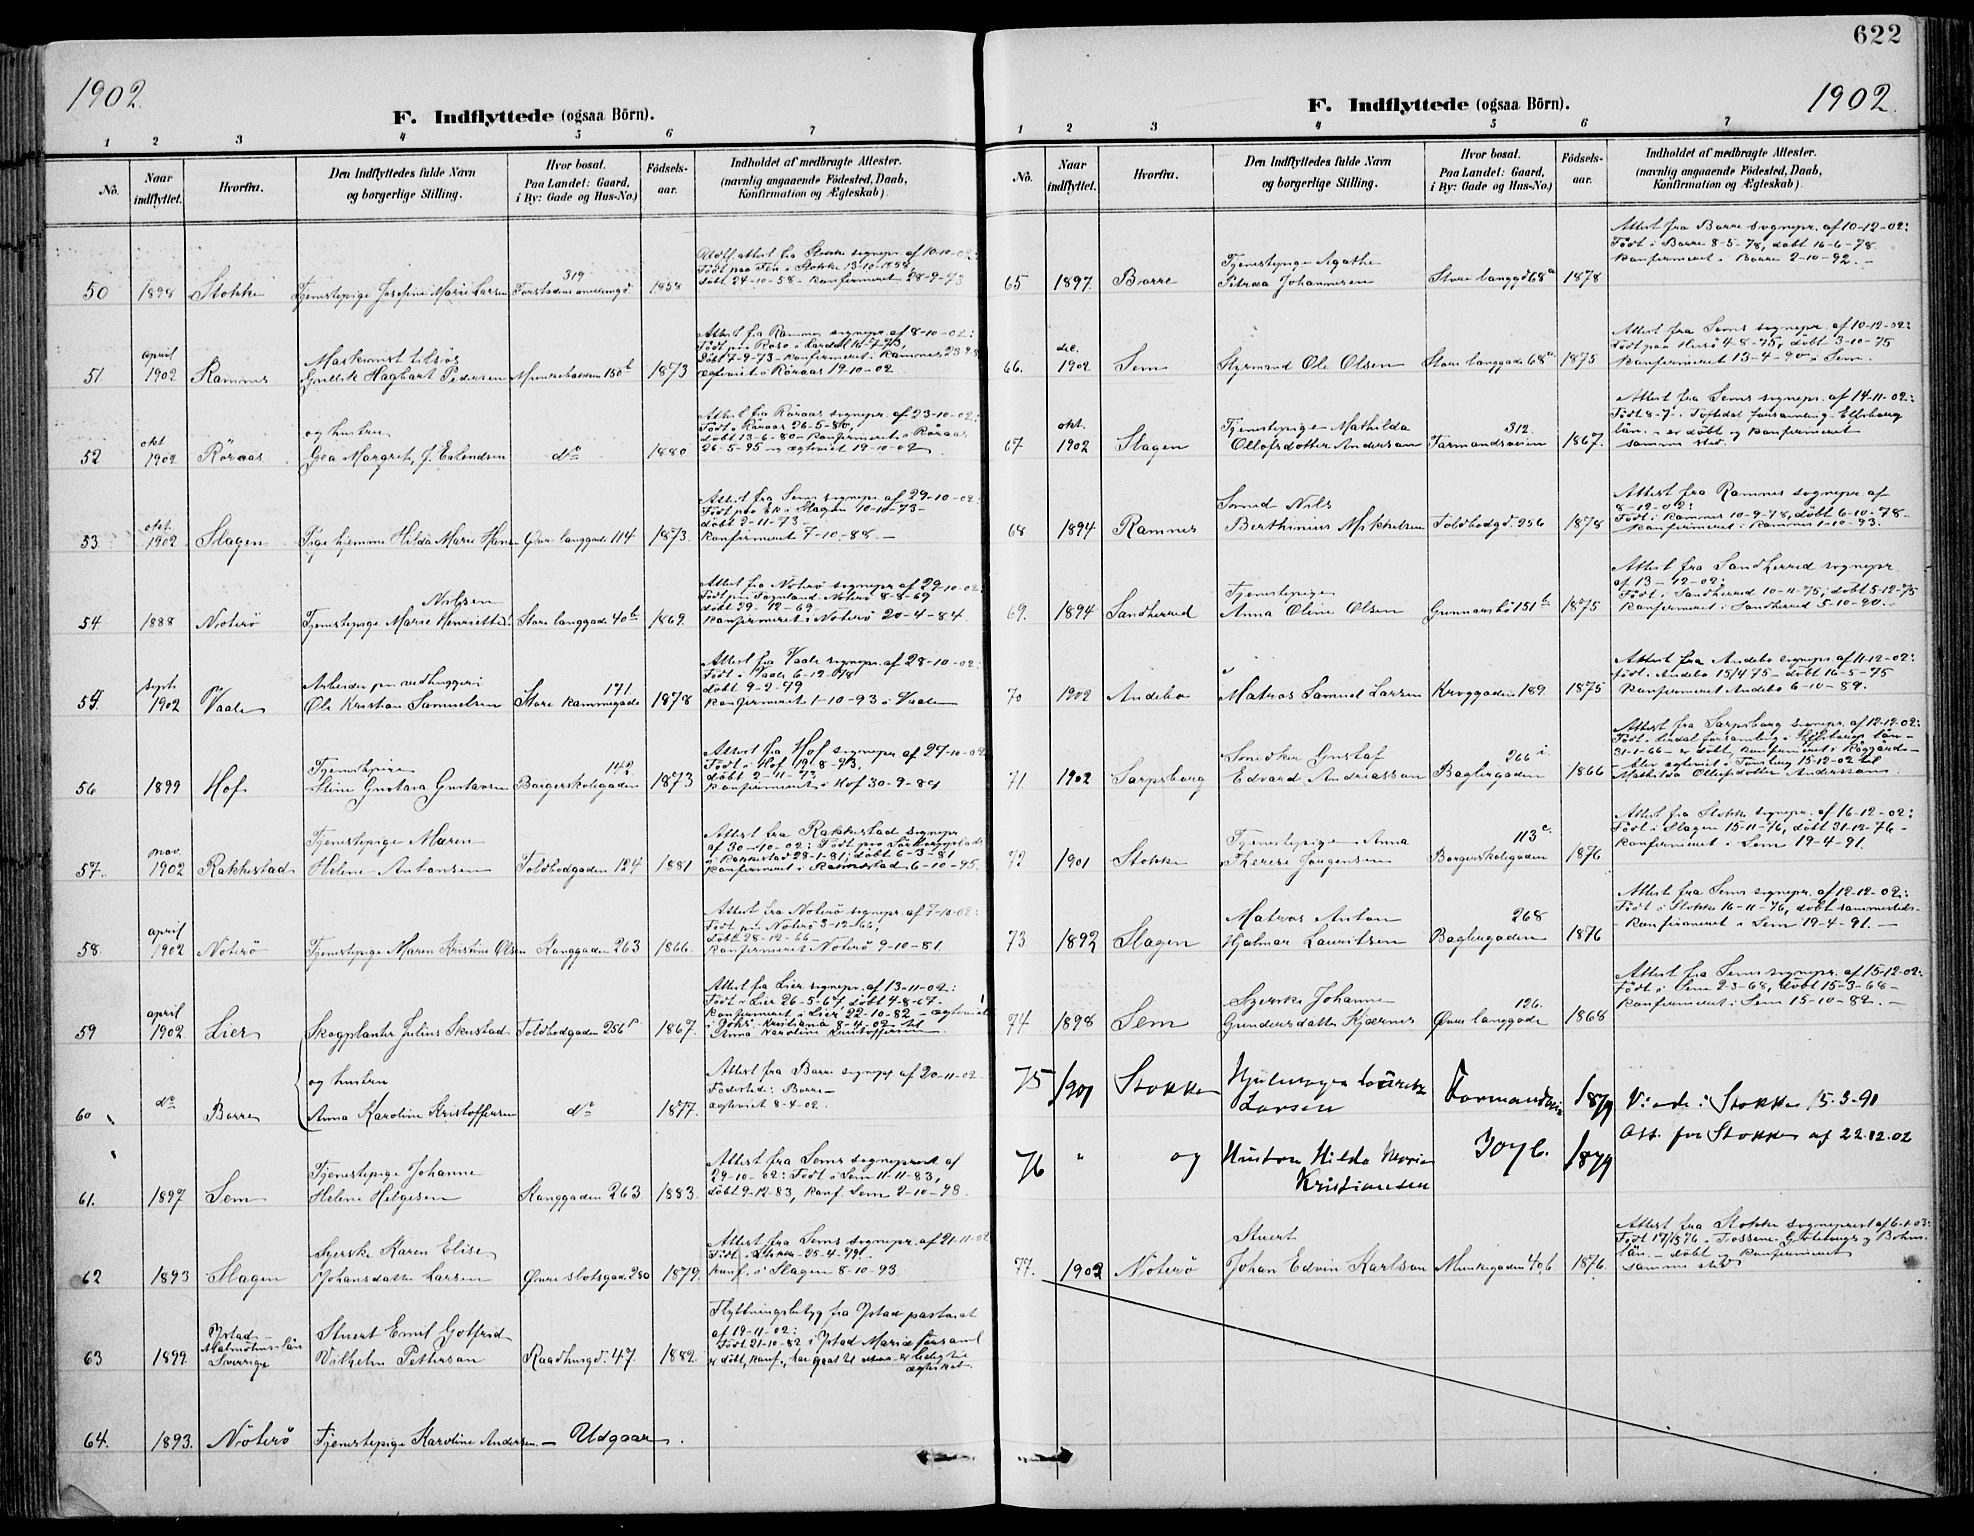 622
1902.
F. Indflyttede (ogsaa Börn).
1 2 3 4 5 6 7
No.
Naar indflyttet.
Hvorfra.
Den Indflyttedes fulde Navn og borgerlige Stilling.
Hvor bosat. Paa Landet: Gaard, i By: Gade og Hus-No.)
Födsels-aar.
Indholdet af medbragte Attester. (navnlig angaaende Födested, Daab, Konfirmation og Ægteskab)
50 1898 Stokke Tjenestepige Josefine Marie Larsen 319 1858
Født paa Fen i Stokke 13-10-1858
døbt 24-10-58 - konfirmeret 28-9-73
51 april 1902 Ramnes Hagbart Pedersen 150b 1873
Attest fra Ramnes sognepr. af 8-10-02:
ægteviet i Röraas 19-10-02
52 okt 1902 Röraas og hustru Gea Margrete J. Erlendsen do 1880
Attest fra Röraas sognepr. af 23-10-02:
Født i Röraas 26-5-80,
døbt 13-6-80 - konfirmeret i Röraas
26-5-95 og ægteviet 19-10-02
53. okt. 1902 Slagen Pige hjemme Hilda Marie Hansen Øvre langgade 114 1873.
Attest fra Sems sognepr. af 29-10-02:
Født paa Ek i Slagen 10-10-73 -
døbt 2-11-73 -
konfirmeret 7-10-88. -
54 1888 Nøterö Tjenestepige Marie Henriette Nilsen Store langgade 40b 1869.
Attest fra Nøterö sognepr af 29-10-02:
Født paa Nøterö 8-8-69
døbt 29-12-69 -
konfirmeret i Nøterö 20-4-84.
55. sept. 1902 Vaale Arbeider paa vedhuggeri Ole Kristian Samuelsen 171 Store kammegade 1878
Attest fra Vaale sognepr. af 28-10-02:
Født i Vaale 6-12-78
døbt 9-2-79
konfirmeret 1-10-93 i Vaale
56 1899 Hof Tjenestepige Stine Gustava Gustavsen 142 Borgerskolegaden 1873
Attest fra Hof sognepr af 27-10-02
Født i Hof 19-8-73,
døbt 2-11-73
konfirmeret i Hof 30-9-89
57. nov. 1902 Rakkestad Tjenestepige Maren Helene Antonsen Toldbodgaden 124 1881
Attest fra Rakkestad sognepr
af 30-10-02: Født paa
i Rakkestad 28-1-81; døbt 6-3-81
konfirmeret i Rakkestad 6-10-95.
58. april 1902 Nøterö Tjenestepige Maren Kristine Olsen Langgaden 263 1866.
Attest fra Nøterö sognepr af 7-10-02:
Født paa Nøterö 3-12-66,
døbt 28-12-66 -
konfirmeret i Nøterö 9-10-81.
59 april 1902 Lier Skogplanter Julius Skustad Toldbodgaden 256 1867.
Attest fra Lier sognepr. af 13-11-02:
Født i Lier 26-5-67, døbt 4-8-67 -
konfirmeret i Lier 22-10-82 - ægteviet
Kristiania 8-4-02 til
Anna Karoline Kristoffersen
60 do Borre og hustru Anna Karoline Kristoffersen do 1877.
Attest fra Borre sognepr af 20-11-02
Fødested: Borre -
ægteviet 8-4-02.
61. 1897 Sem Tjenestepige Johanne Helene Helgesen Langgaden 263 1883.
Attest fra Sems sogneprest af
29-10-02: Født i Sem 11-11-83,
døbt 9-12-83, konf. Sem 2-10-98.
62 1893 Slagen Syerske Karen Elise Johansdatter Larsen Øvre slotsgad. 280 1879.
Attest fra Sems sognepr. af 21-11-02
Født i 25-4-79.
konf. i Slagen 8-10-93.
63 1899. Ystad - Malmöhus län Sverrige Stuert Emil Gotfrid Vilhelm Petterson Raadhusgd. 47. 1882.
Flyttningsbetyg fra Ystad pastorat
af 19-11-02:
Født 21-10-82 i Ystad Mariæ församl
er døbt, konf., har gaat til - er ledig til ægteskab.
64. 1893. Nøterö Tjenestepige Karoline Andersen - Udgaar.
1902.
F. Indflyttede (ogsaa Börn).
1 2 3 4 5 6 7
No.
Naar indflyttet.
Hvorfra.
Den Indflyttedes fulde Navn og borgerlige Stilling.
Hvor bosat. Paa Landet: Gaard, i By: Gade og Hus-No.)
Födsels-aar.
Indholdet af medbragte Attester. (navnlig angaaende Födested, Daab, Konfirmation og Ægteskab)
65 1897. Borre Tjenestepige Agathe Petrea Johannesen Store langgd 68a 1878
Attest fra Borre sognepr. af 10-12-02:
Født i Borre 8-5-78, døbt 16-6-78
konfirmeret i Borre 2-10-92. -
66. dec. 1902 Sem Styrmand Ole Olsen Store langgade 68a 1875
Attest fra Sems sognepr. af 10-12-02:
Født paa Husö 4-8-75, døbt 3-10-75
konfirmeret 13-4-90 i Sem.
67 okt. 1902 Slagen Tjenestepige Mathilda Ollofsdotter Anderson 312. Farmandsveien 1867.
Attest fra Sems sognepr. af 14-11-02:
Født 8-7 församling - Elfsborg
län. - er døbt og konfirmeret
samme sted.
68 1894 Ramnes Smed Nils Berthinius Mikkelsen Toldbodgd. 256 1878
Attest fra Ramnes sognepr af
8-12-02:
Født i Ramnes 10-9-78, døbt 6-10-78 -
konfirmeret i Ramnes 1-10-93.
69. 1894 Sandherred Tjenestepige Anna Oline Olsen Gunnarsbö 151b 1875
Attest fra Sandherred sognepr
af 13-12-02:
Født i Sandherred 10-11-75, døbt 5-12-75
konfirmeret i Sandherred 5-10-90. -
70 1902 Andebo Matros Samuel Larsen Kroggaden 189. 1875
Attest fra Andebo sognepr af 11-12-02:
født i Andebo 15/4 75 - døbt 16-5-75
konfirmeret Andebo 6-10-89.
71. 1902 Sarpsborg Snedker Gustaf Edvard Andreasson 266 i. Baglergaden 1866
Attest fra Sarpsborg sognepr. af 12-12-02:
31-1-66 - er døbt, konfirmeret i
- blev ægteviet i Tønsberg 15-12-02 til
Mathilda Ollofsdotter Anderson.
72 1901 Stokke Tjenestepige Anna Therese Jørgensen 113c. Borgerskolegaden 1876
Attest fra Stokke sognepr. af 16-12-02:
Født i Slagen 15-11-76, døbt 31-12-76 -
konfirmeret i Sem 19-4-91.
73. 1892 Slagen Matros Anton Hjalmar Lauritsen 268 Baglergaden 1876
Attest fra Sems sognepr. af 12-12-02:
Født i Stokke 16-11-76, døbt sammesteds -
- konfirmeret i Sem 19-4-91. -
74 1898 Sem Syerske Johanne Gundersdatter Kjærnes 126. Øvre langgade 1868
Attest fra Sems sognepr. af 15-12-02:
Født i Sem 2-3-68, døbt 15-3-68 -
konfirmeret i Sem 15-10-82. -
75 1901 Stokke Hjulmager Lauritz Larsen Farmandsvn 1879 Viede i Stokke 15-3-91
Att. fra Stokke af 22.12.02
76 " og Hustru Hilda Maria Kristiansen 1879
77. 1902 Nøterö Stuert Johan Edvin Karlson Munkegaden 406. 1876.
Attest fra Stokke sogneprest af 6-1-03:
Født 17/1 876 i Fossene - Göteborgs og Bohus
län. - døbt og konfirmeret
samme sted